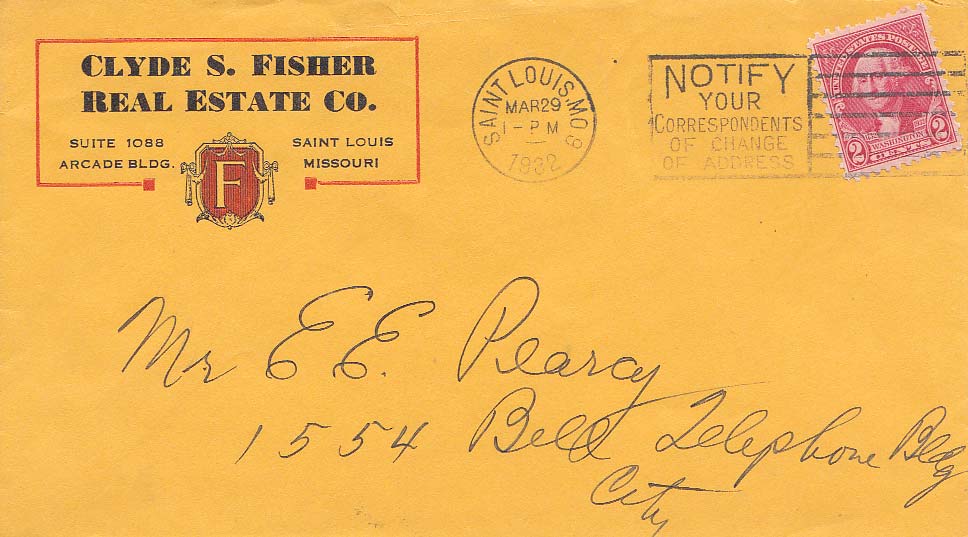 CLYDE S. FISHER
REAL ESTATE CO.
SUITE 1088
ARCADE BLDG.
SAINT LOUIS
MISSOURI
F
SAINT LOUIS, MO. 9
MAR 29
1 - PM
1932
NOTIFY
YOUR
CORRESPONDENTS
OF CHANGE
OF ADDRESS
UNITED STATES POSTAGE
WASHINGTON
2 CENTS 2
Mr E. E. Pearcy
1554 Bell Telephone Bldg
City